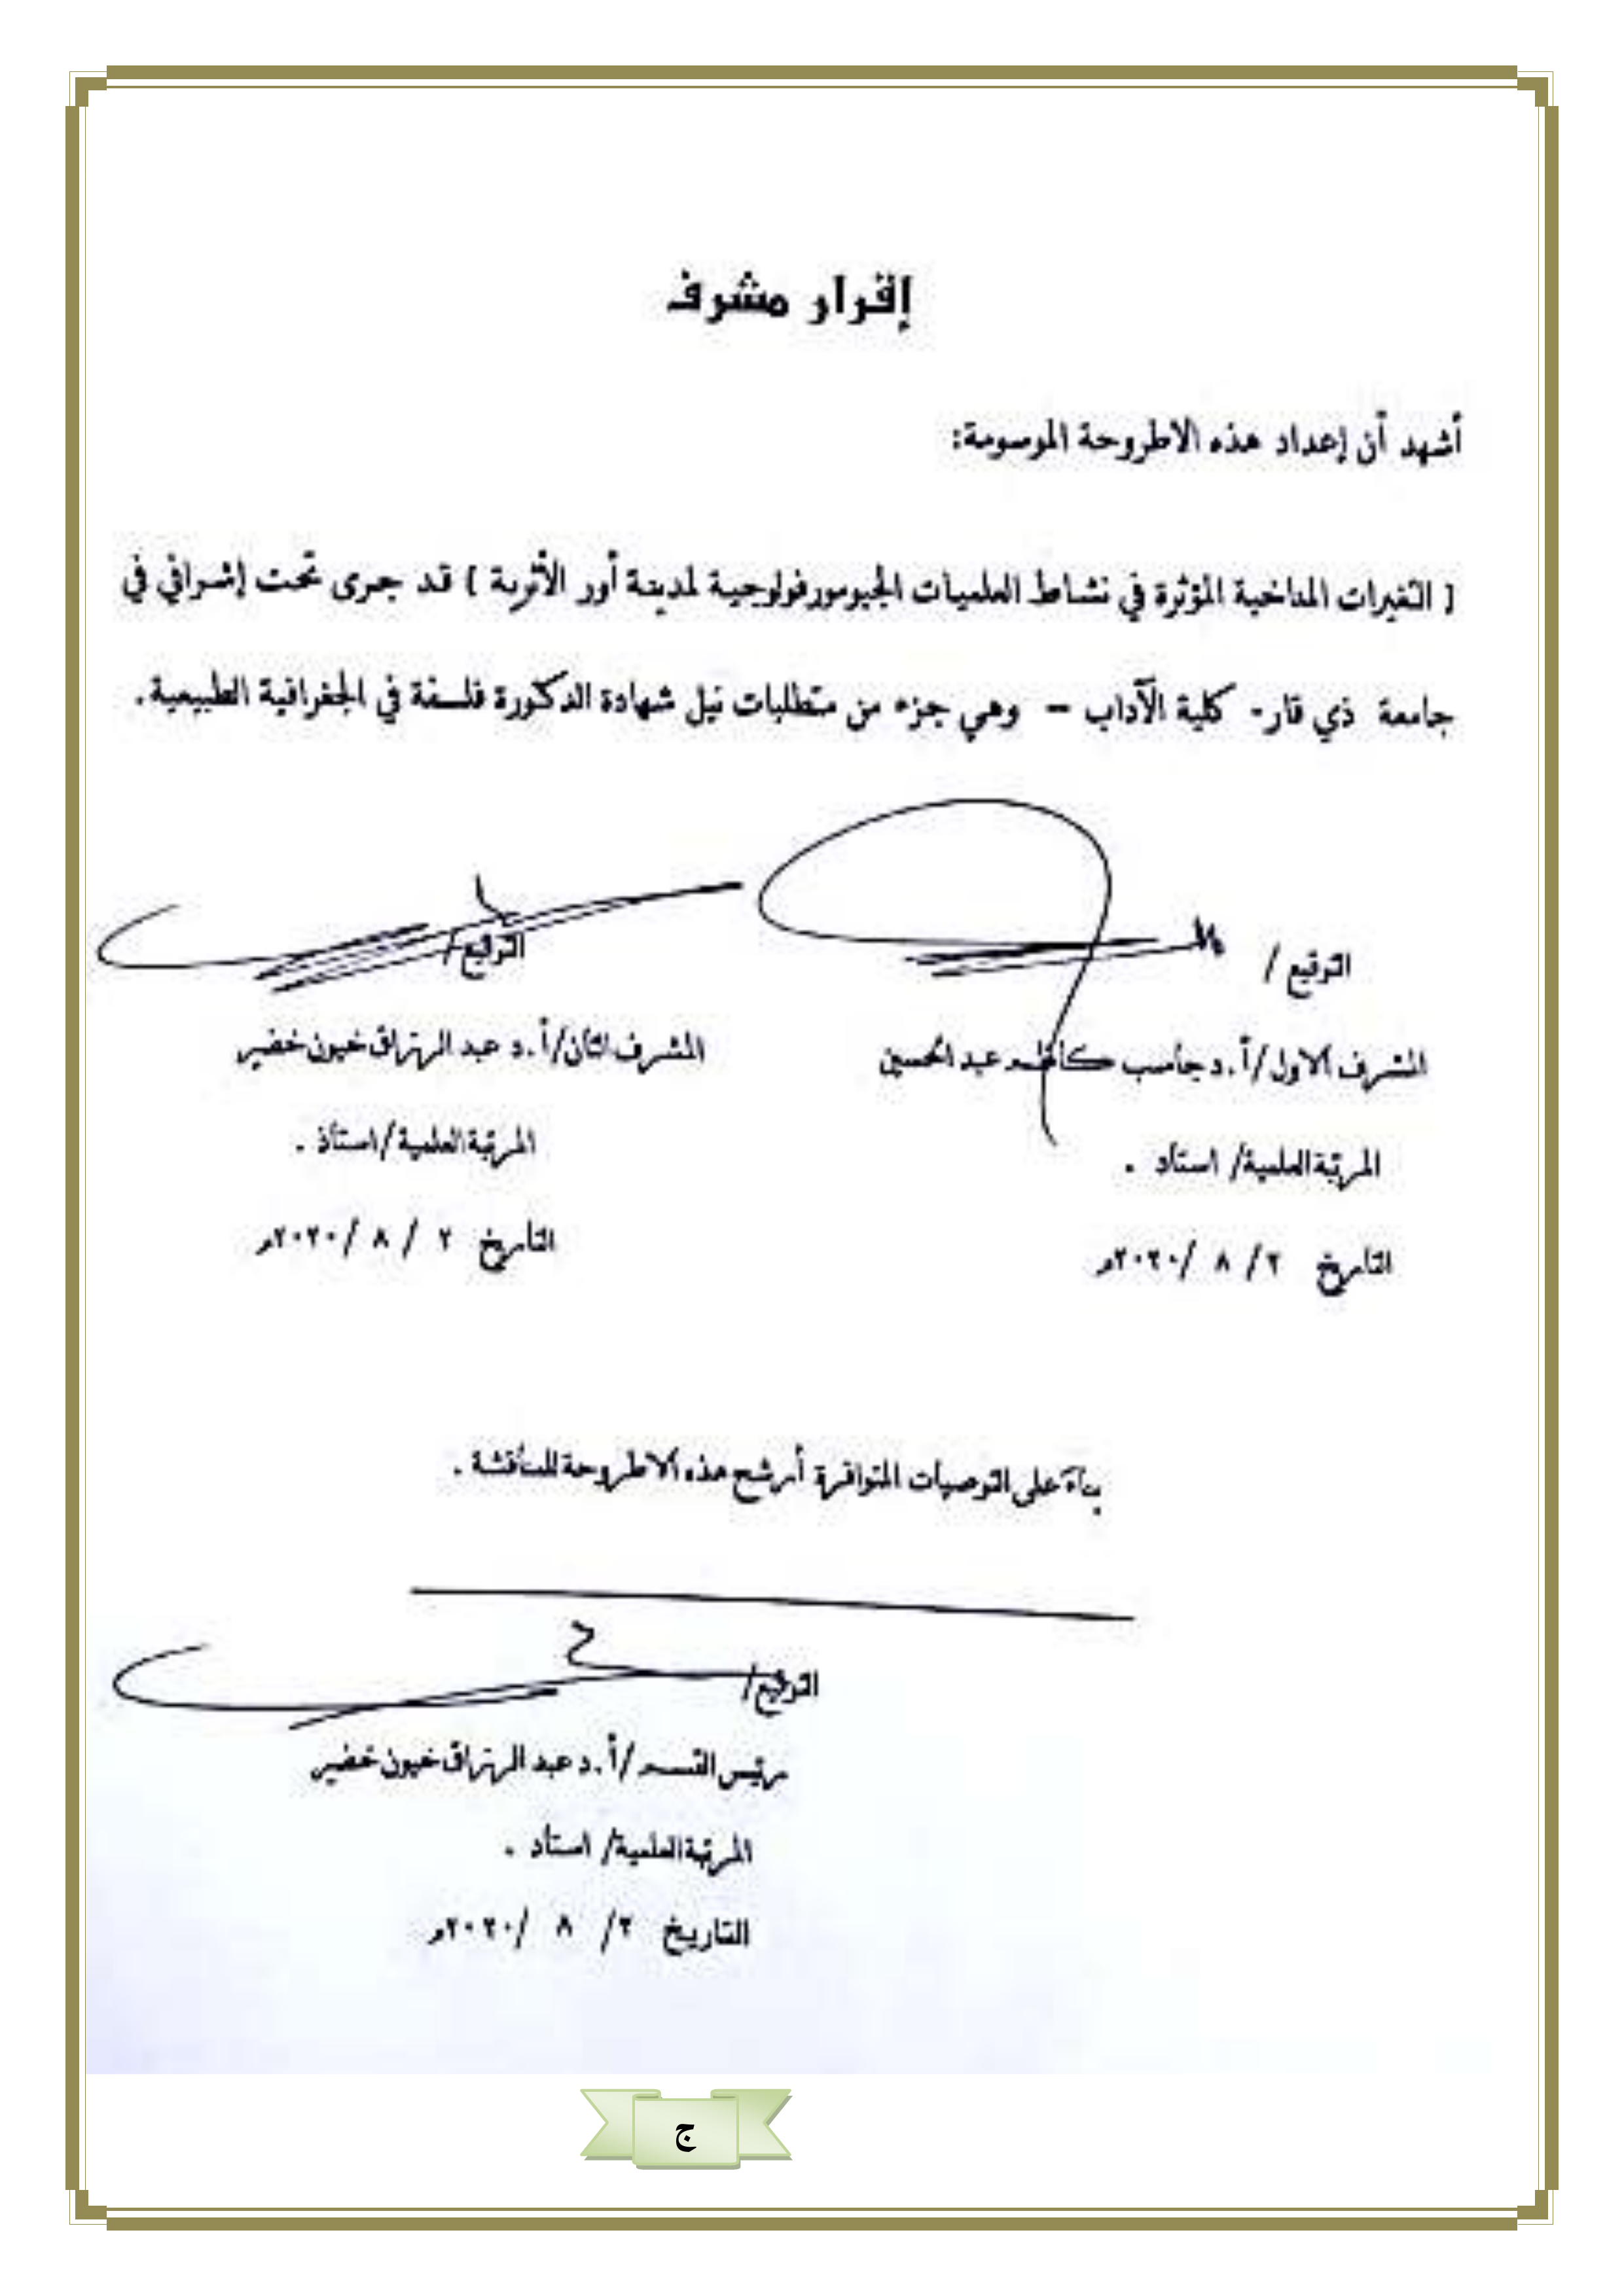 إقرار مشرف
أشهد أن إعداد هذه الاطروحة الموسومة:
( التغيرات المناخية المؤثرة في نشاط العلميات الجيومورفولوجية لمدينة أور الأثرية ) قد جرى تحت إشرافي في
جامعة ذي قار- كلية الآداب – وهي جزء من متطلبات نيل شهادة الدكتورة فلسفة في الجغرافية الطبيعية .
التوقيع /
المشرف الاول/أ.د جاسب كاظم عبد الحسين
المرتبة العلمية/ استاذ .
التاريخ ٢ / ٨ /٢٠٢٠م
التوقيع/
المشرف الثان/أ.د عبد الرزاق خيون خضير
المرتبة العلمية/استاذ .
التاريخ ٢ / ٨ /٢٠٢٠م
بناءً على التوصيات المتوافرة أرشح هذه الاطروحة للمناقشة .
التوقيع/
رئيس القسم /أ.د عبد الرزاق خيون خضير
المرتبة العلمية/ استاذ .
التاريخ ٢/ ٨ /٢٠٢٠م
ج